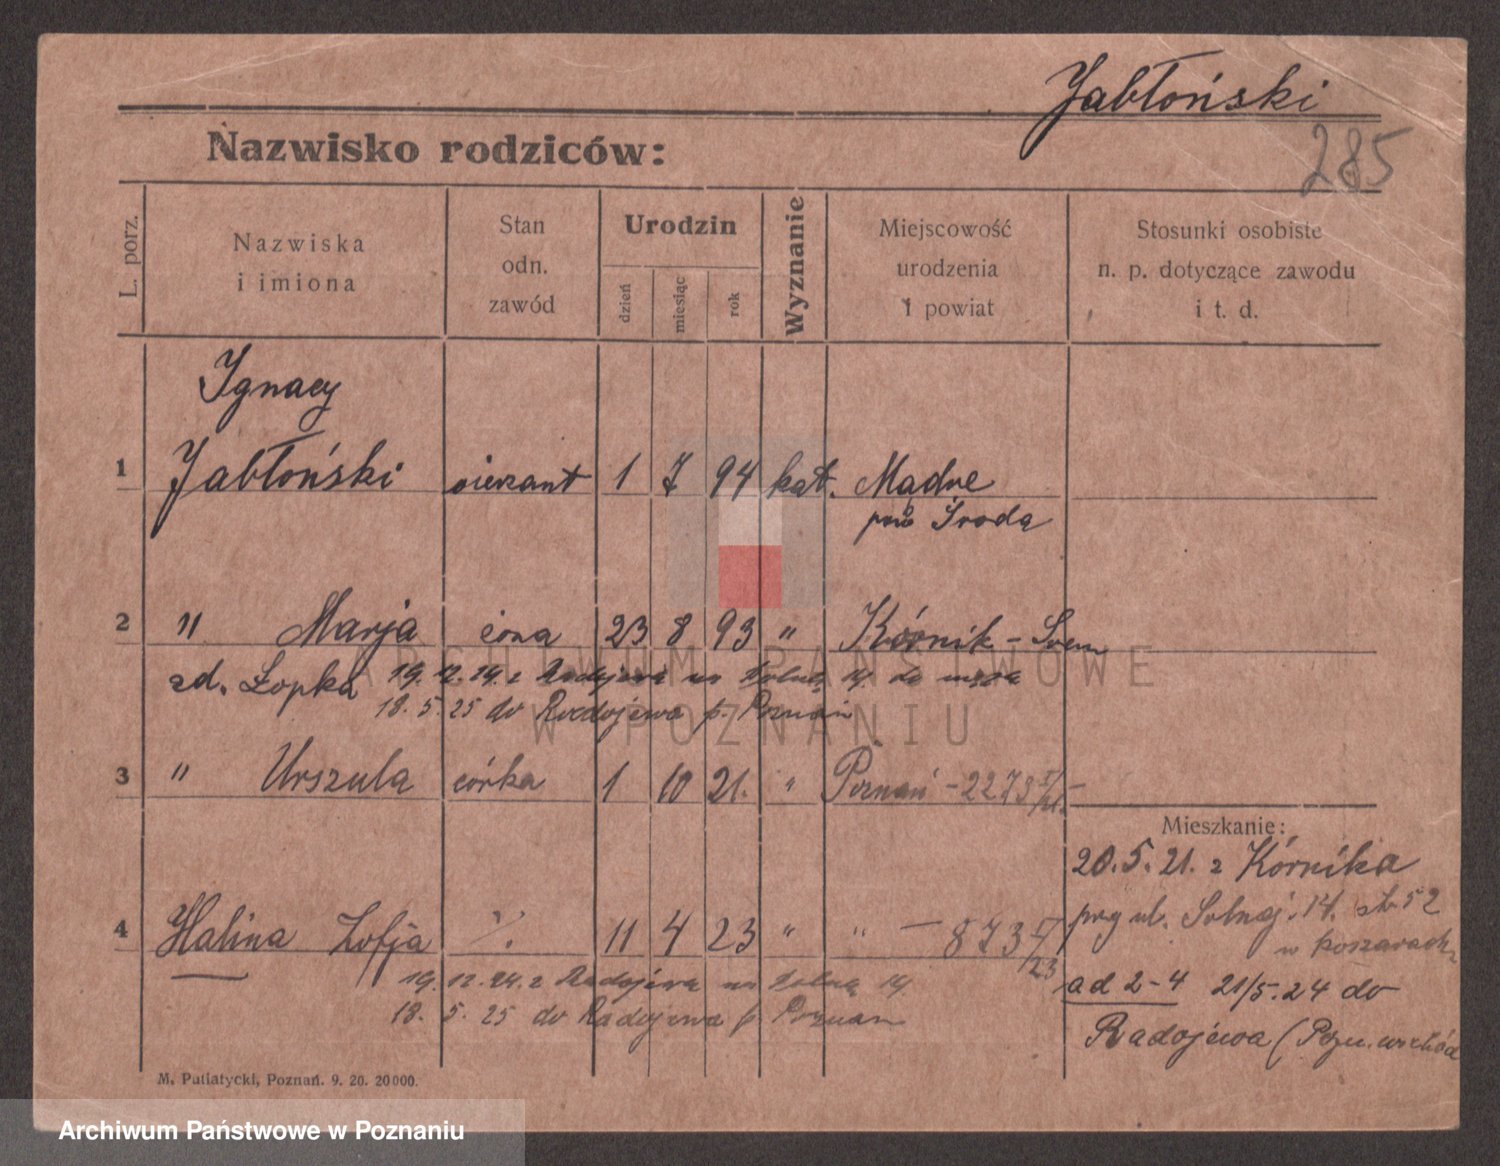 Jabłoński
285
Nazwisko rodziców:
L. porz.
Nazwiska
i imiona
Stan
odn.
zawód
Urodzin
dzień
miesiąc
rok
Wyznanie
Miejscowość
urodzenia
i powiat
Stosunki osobiste
n. p. dotyczące zawodu
i t. d.
Ignacy
1 Jabłoński sierżant 1 7 94 kat. Mądre
pow Środa
2 " Marja żona 23 8 93 " Kórnik - Śrem
zd. Łopka 19. 12. 24. z Radojewa na Solną 14. do męża
18. 5. 25 do Radojewa p. Poznań
3 " Urszula córka 1 10 21. " Poznań - 2273
Mieszkanie:
20. 5. 21. z Kórnika
przy ul. Solnej. 14. 52
w koszarach
4 Halina Zofja ·/. 11 4 23 " " - 873 /23
19. 12. 24. z Radojewa na Solną 14.
18. 5. 25 do Radojewa p Poznań
ad 2-4 21/5.24 do
Radojewa (Pozn. wschód
M. Putiatycki, Poznań. 9. 20. 20000.
ARCHIWUM PAŃSTWOWE
W POZNANIU
Archiwum Państwowe w Poznaniu